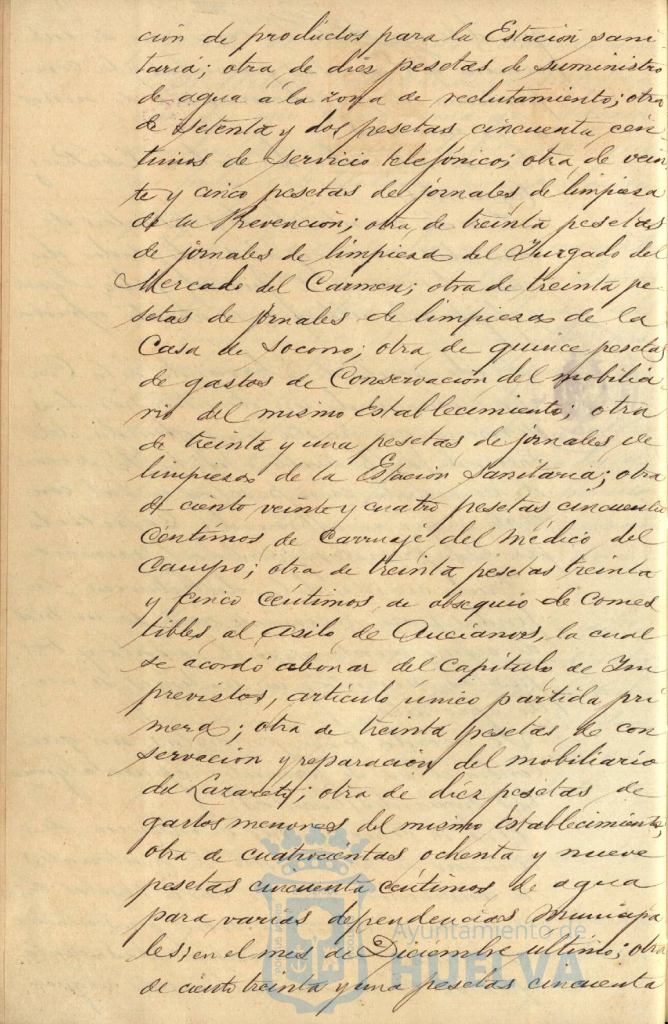 ción de productos para la Estación sani
taria; otra de diez pesetas de suministro
de agua á la zona de reclutamiento; otra
de setenta y dos pesetas cincuenta cén
timos de servicio telefónico; otra de vein
te y cinco pesetas de jornales de limpieza
de la Prevención; otra de treinta pesetas
de jornales de limpieza del Juzgado del
Mercado del Carmen; otra de treinta pe
setas de jornales de limpieza de la
Casa de Socorro; otra de quince pesetas
de gastos de Conservación del mobilia
rio del mismo Establecimiento; otra
de treinta y una pesetas de jornales de
limpieza de la Estación Sanitaria; otra
de ciento veinte y cuatro pesetas cincuenta
céntimos de carruaje del Médico del
Campo; otra de treinta pesetas treinta
y cinco céntimos de obsequio de comes
tibles al Asilo de Ancianos, la cual
se acordó abonar del Capítulo de Im
previstos, artículo único partida pri
mera; otra de treinta pesetas de con
servación y reparación del mobiliario
del Lazareto; otra de diez pesetas de
gastos menores del mismo Establecimiento;
otra de cuatrocientas ochenta y nueve
pesetas cincuenta céntimos de agua
para varias dependencias Municipa
les, en el mes de Diciembre último; otra
de ciento treinta y una pesetas cincuenta
Ayuntamiento de
HUELVA